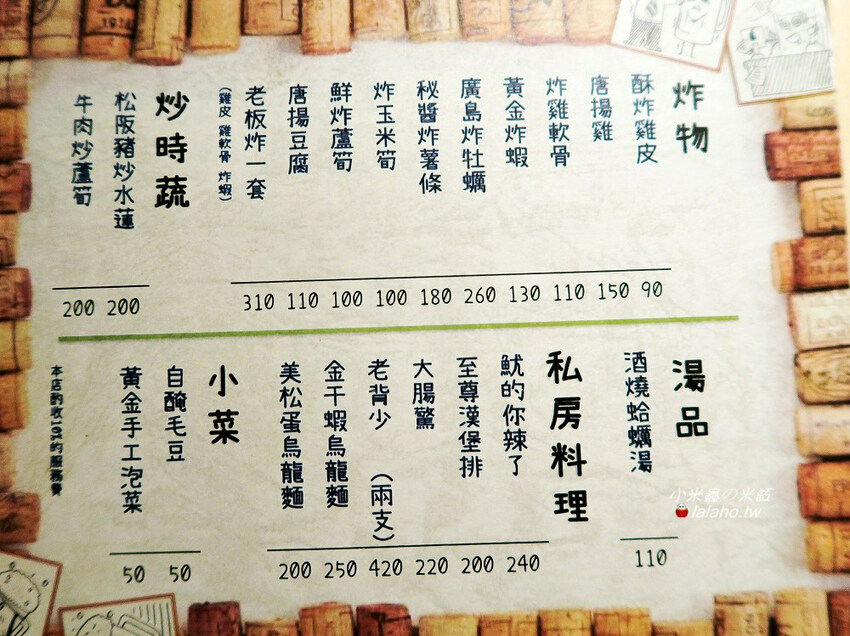 炸物
酥炸雞皮 90
唐揚雞 150
炸雞軟骨 110
黃金炸蝦 130
廣島炸牡蠣 260
秘醬炸薯條 180
炸玉米筍 100
鮮炸蘆筍 100
唐揚豆腐 110
老板炸一套 310
(雞皮 雞軟骨 炸蝦)
炒時蔬
松阪豬炒水蓮 200
牛肉炒蘆筍 200
湯品
酒燒蛤蠣湯 110
私房料理
魷的你辣了 240
至尊漢堡排 200
大腸驚 220
老背少 (兩支) 420
金干蝦烏龍麵 250
美松蛋烏龍麵 200
小菜
自醃毛豆 50
黃金手工泡菜 50
本店酌收10%的服務費
lalaho.tw